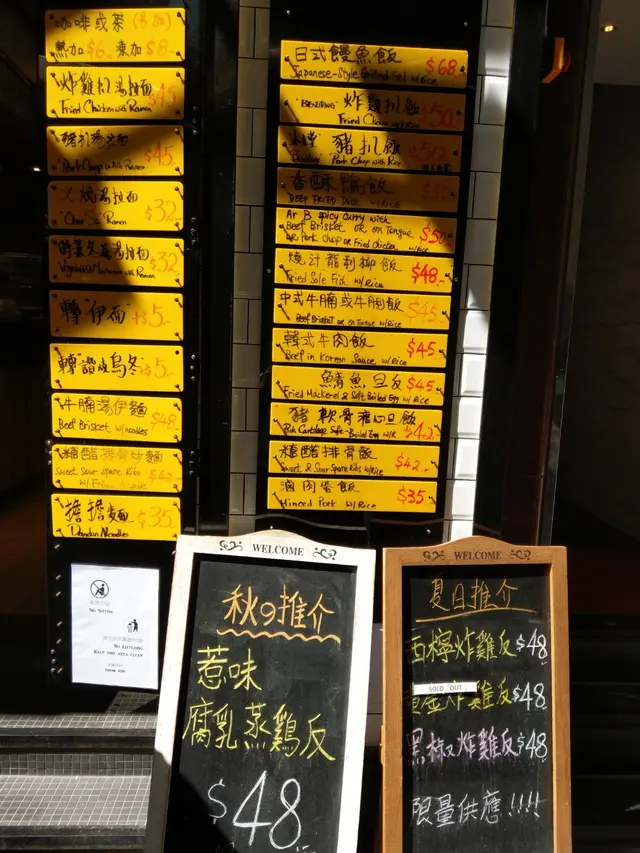 咖啡或茶
熱加$6 凍加$8
炸雞扒湯拉面
Fried Chicken with Ramen $45
豬扒湯拉面
Pork Chop with Ramen $45
叉燒湯拉面
Char Siu Ramen $32
時菜冬菇湯拉面
Vegetable & Mushroom with Ramen $32
轉"伊面"+$5
轉"讚岐烏冬"+$5
牛腩湯伊麵
Beef Brisket w/ noodles $48
糖醋排骨炒麵
Sweet Sour Spare Ribs $42
擔擔麵 $35
Dandan Noodles
NO SITTING
NO LITTERING
KEEP THIS AREA CLEAN
THANK YOU
日式饅魚飯 $68
Japanese-Style Grilled Eel w/Rice
炸雞扒飯 $50
Fried Chicken w/Rice
豬扒飯 $50
Pork Chop w/Rice
香酥鴨飯 $50
DEEP FRIED DUCK w/RICE
Spicy curry with
Beef Brisket or ox Tongue
or Pork Chop or Fried chicken w/Rice $50
燒汁龍利柳飯 $48
Fried Sole Fish w/Rice
中式牛腩或牛脷飯 $45
Beef Brisket or ox Tongue w/Rice
韓式牛肉飯 $45
Beef in Korean Sauce w/Rice
鯖魚旦反 $45
Fried Mackerel & Soft Boiled Egg w/Rice
豬軟骨溏心旦飯 $42
Pork Cartilage Soft-Boiled Egg w/R
糖醋排骨飯 $42
Sweet & Sour Spare Ribs w/Rice
滷肉蛋飯 $35
Minced Pork w/Rice
WELCOME
秋日推介
惹味
腐乳蒸鷄反
$48
WELCOME
夏日推介
西檸炸雞反$48
SOLD OUT
黃金炸雞反$48
黑椒炸雞反$48
限量供應!!!!